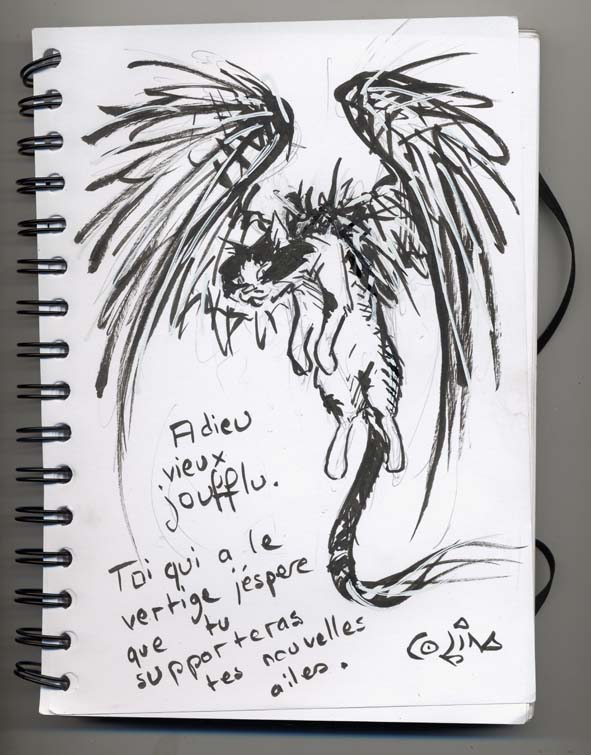 Adieu
vieux
joufflu.
Toi qui a le
vertige j'éspere
que tu
supporteras
tes nouvelles
ailes.